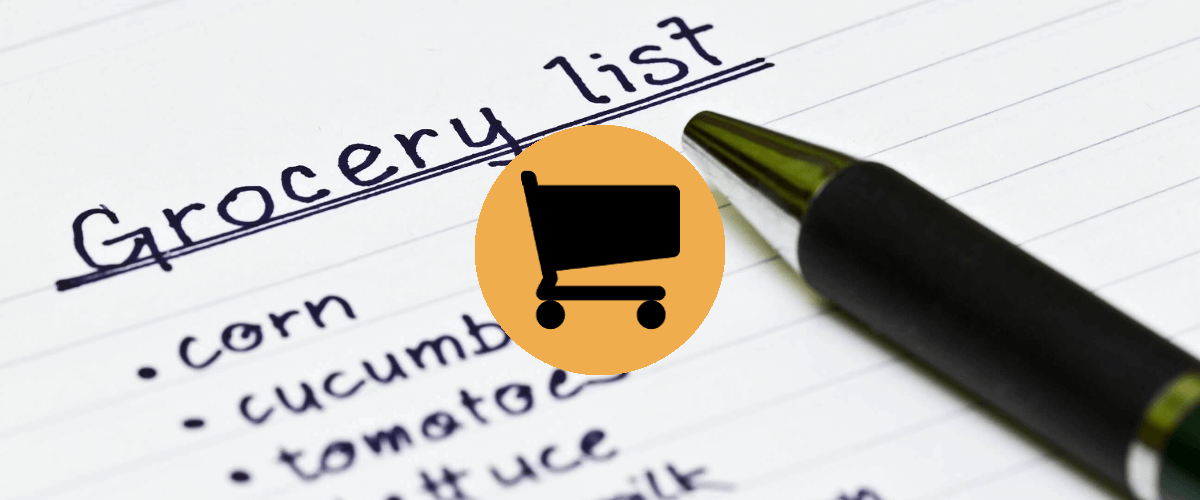 Grocery list
• corn
• cucumb
• tomatoes
lettuce
milk